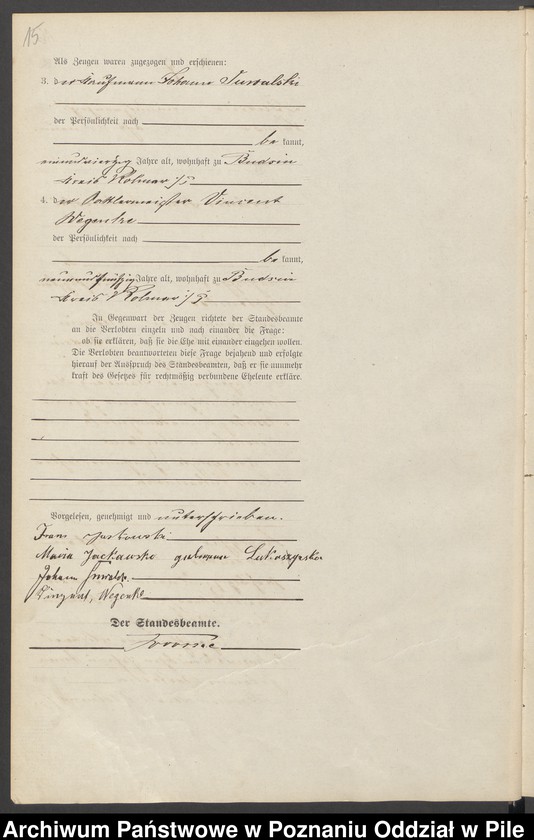 15
Als Zeugen waren zugezogen und erschienen:
3. der Kaufmann Johann Suwalski
der Persönlichkeit nach
be kannt,
einundvierzig Jahre alt, wohnhaft zu Budsin
Kreis Kolmar i/P
4. der Sattlermeister Vincent
Wegenke
der Persönlichkeit nach
be kannt,
neunundfünfzig Jahre alt, wohnhaft zu Budsin
Kreis Kolmar i/P
In Gegenwart der Zeugen richtete der Standesbeamte
an die Verlobten einzeln und nach einander die Frage:
ob sie erklären, daß sie die Ehe mit einander eingehen wollen.
Die Verlobten beantworteten diese Frage bejahend und erfolgte
hierauf der Ausspruch des Standesbeamten, daß er sie nunmehr
kraft des Gesetzes für rechtmäßig verbundene Eheleute erkläre.
Vorgelesen, genehmigt und unterschrieben.
Franz
Maria geborene
Johann Suwalski
Vinzent Wegenke
Der Standesbeamte.
Archiwum Państwowe w Poznaniu Oddział w Pile